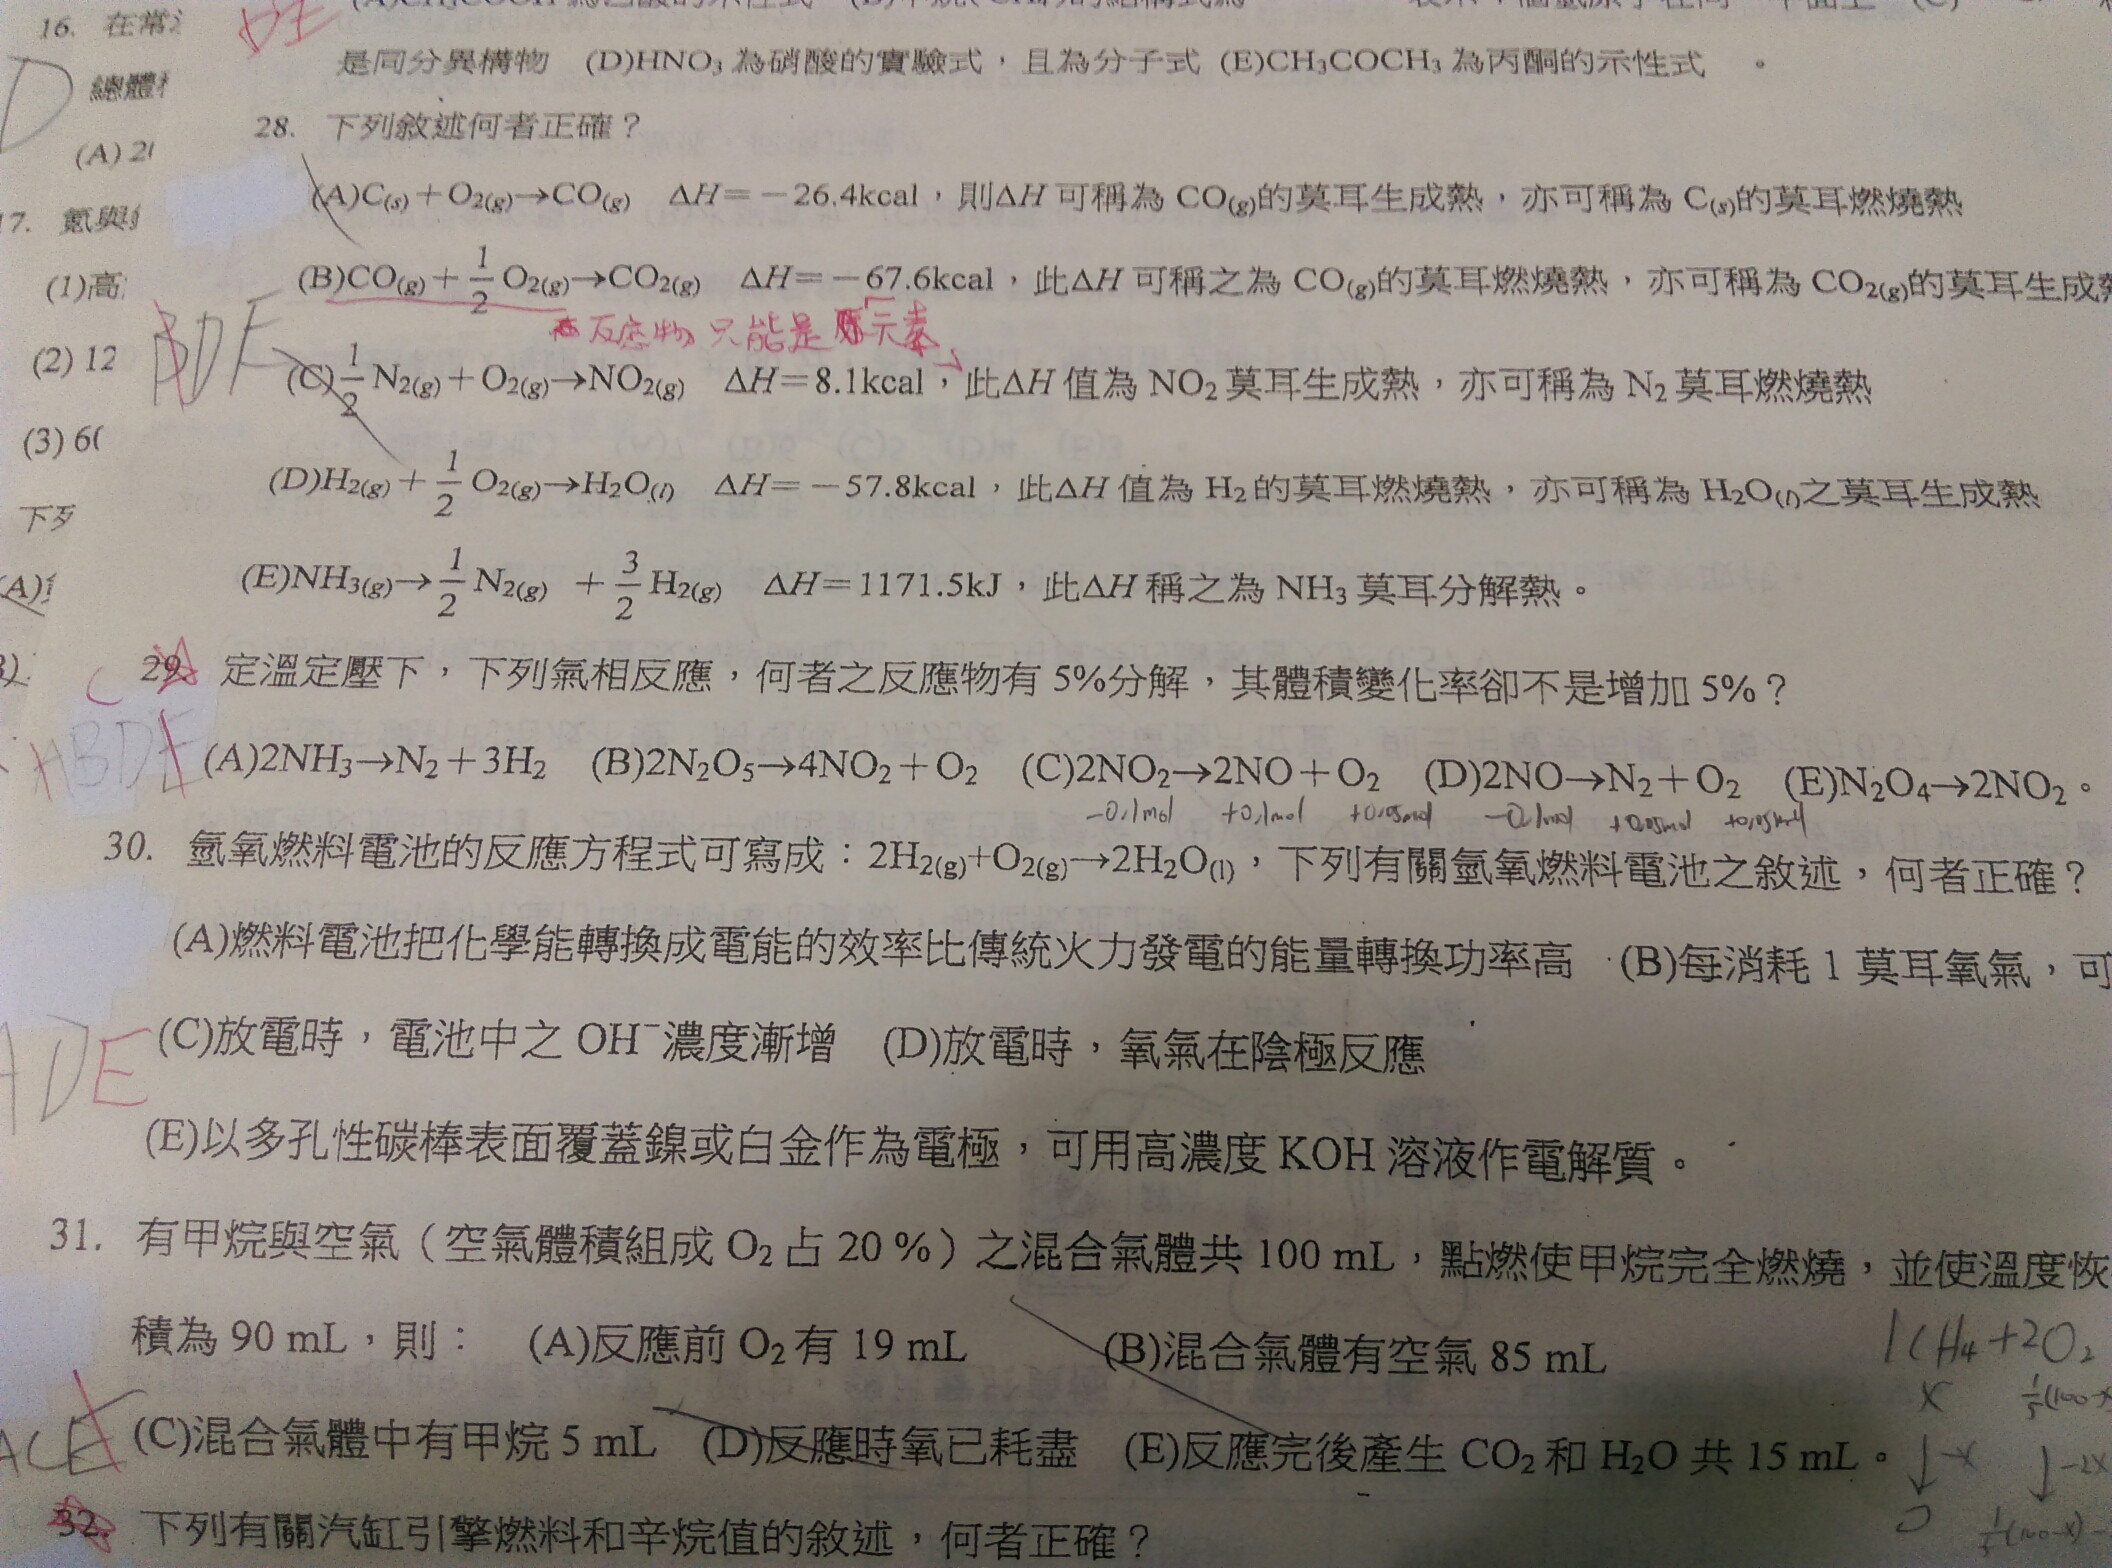 是同分異構物 (D)HNO₃ 為硝酸的實驗式，且為分子式 (E)CH₃COCH₃ 為丙酮的示性式 。
16. 在常
總體積
(A) 2
17. 氪與
(1)高
(2) 12
(3) 6
下列
28. 下列敘述何者正確？
(A)C(s)＋O₂(g)→CO(g) ΔH＝－26.4kcal，則ΔH 可稱為 CO(g)的莫耳生成熱，亦可稱為 C(s)的莫耳燃燒熱
(B)CO(g)＋1/2 O₂(g)→CO₂(g) ΔH＝－67.6kcal，此ΔH 可稱之為 CO(g)的莫耳燃燒熱，亦可稱為 CO₂(g)的莫耳生成熱
反應物 只能是「元素」
BDE
(C)1/2 N₂(g)＋O₂(g)→NO₂(g) ΔH＝8.1kcal，此ΔH 值為 NO₂ 莫耳生成熱，亦可稱為 N₂ 莫耳燃燒熱
(D)H₂(g)＋1/2 O₂(g)→H₂O(l) ΔH＝－57.8kcal，此ΔH 值為 H₂ 的莫耳燃燒熱，亦可稱為 H₂O(l)之莫耳生成熱
(E)NH₃(g)→1/2 N₂(g) ＋3/2 H₂(g) ΔH＝1171.5kJ，此ΔH 稱之為 NH₃ 莫耳分解熱。
C 29. 定溫定壓下，下列氣相反應，何者之反應物有 5%分解，其體積變化率卻不是增加 5%？
ABDE
(A)2NH₃→N₂＋3H₂ (B)2N₂O₅→4NO₂＋O₂ (C)2NO₂→2NO＋O₂ (D)2NO→N₂＋O₂ (E)N₂O₄→2NO₂。
-0.1mol +0.1mol +0.05mol -0.1mol +0.05mol +0.05mol
30. 氫氧燃料電池的反應方程式可寫成：2H₂(g)+O₂(g)→2H₂O(l)，下列有關氫氧燃料電池之敘述，何者正確？
(A)燃料電池把化學能轉換成電能的效率比傳統火力發電的能量轉換功率高 (B)每消耗 1 莫耳氧氣，可
(C)放電時，電池中之 OH⁻濃度漸增 (D)放電時，氧氣在陰極反應
ADE
(E)以多孔性碳棒表面覆蓋鎳或白金作為電極，可用高濃度 KOH 溶液作電解質。
31. 有甲烷與空氣（空氣體積組成 O₂ 占 20 %）之混合氣體共 100 mL，點燃使甲烷完全燃燒，並使溫度恢
積為 90 mL，則： (A)反應前 O₂ 有 19 mL (B)混合氣體有空氣 85 mL
1CH₄+2O₂
x 1/5(100-x
ACE
(C)混合氣體中有甲烷 5 mL (D)反應時氧已耗盡 (E)反應完後產生 CO₂ 和 H₂O 共 15 mL。
-x -2x
0 1/5(100-x)-
32. 下列有關汽缸引擎燃料和辛烷值的敘述，何者正確？